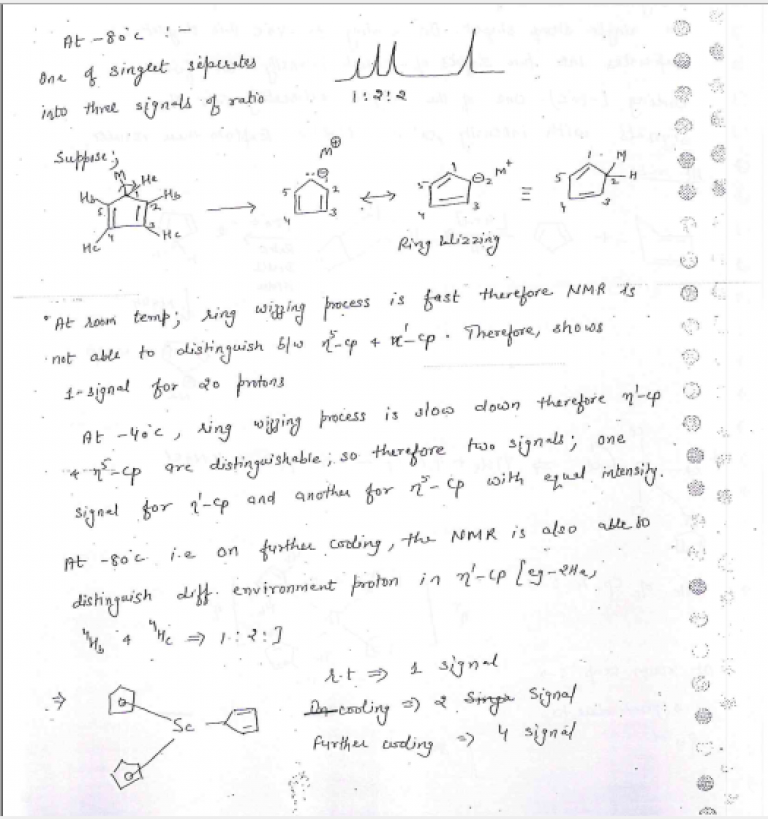 At -80°c :-
One of singlet seperates
into three signals of ratio
1:2:2
Suppose;
M
Ha
Hb
Hb
1
2
3
4
5
Hc
Hc
M⊕
⊖
5
2
4
3
1
5
⊖2 M⁺
4
3
1
M
5
2
H
4
3
Ring Wizzing
*At room temp; ring wizzing process is fast therefore NMR is
not able to distinguish b/w η⁵-cp + η¹-cp. Therefore, shows
1-signal for 20 protons
At -40°c, ring wizzing process is slow down therefore η¹-cp
+ η⁵-cp are distinguishable; so therefore two signals; one
signal for η¹-cp and another for η⁵-cp with equal intensity.
At -80°c i.e on further cooling, the NMR is also able to
distinguish diff. environment proton in η¹-cp [eg-2Ha,
4Hb + 4Hc ⇒ 1:2:]
⇒
Sc
r.t ⇒ 1 signal
cooling ⇒ 2 Signal
further cooling ⇒ 4 signal